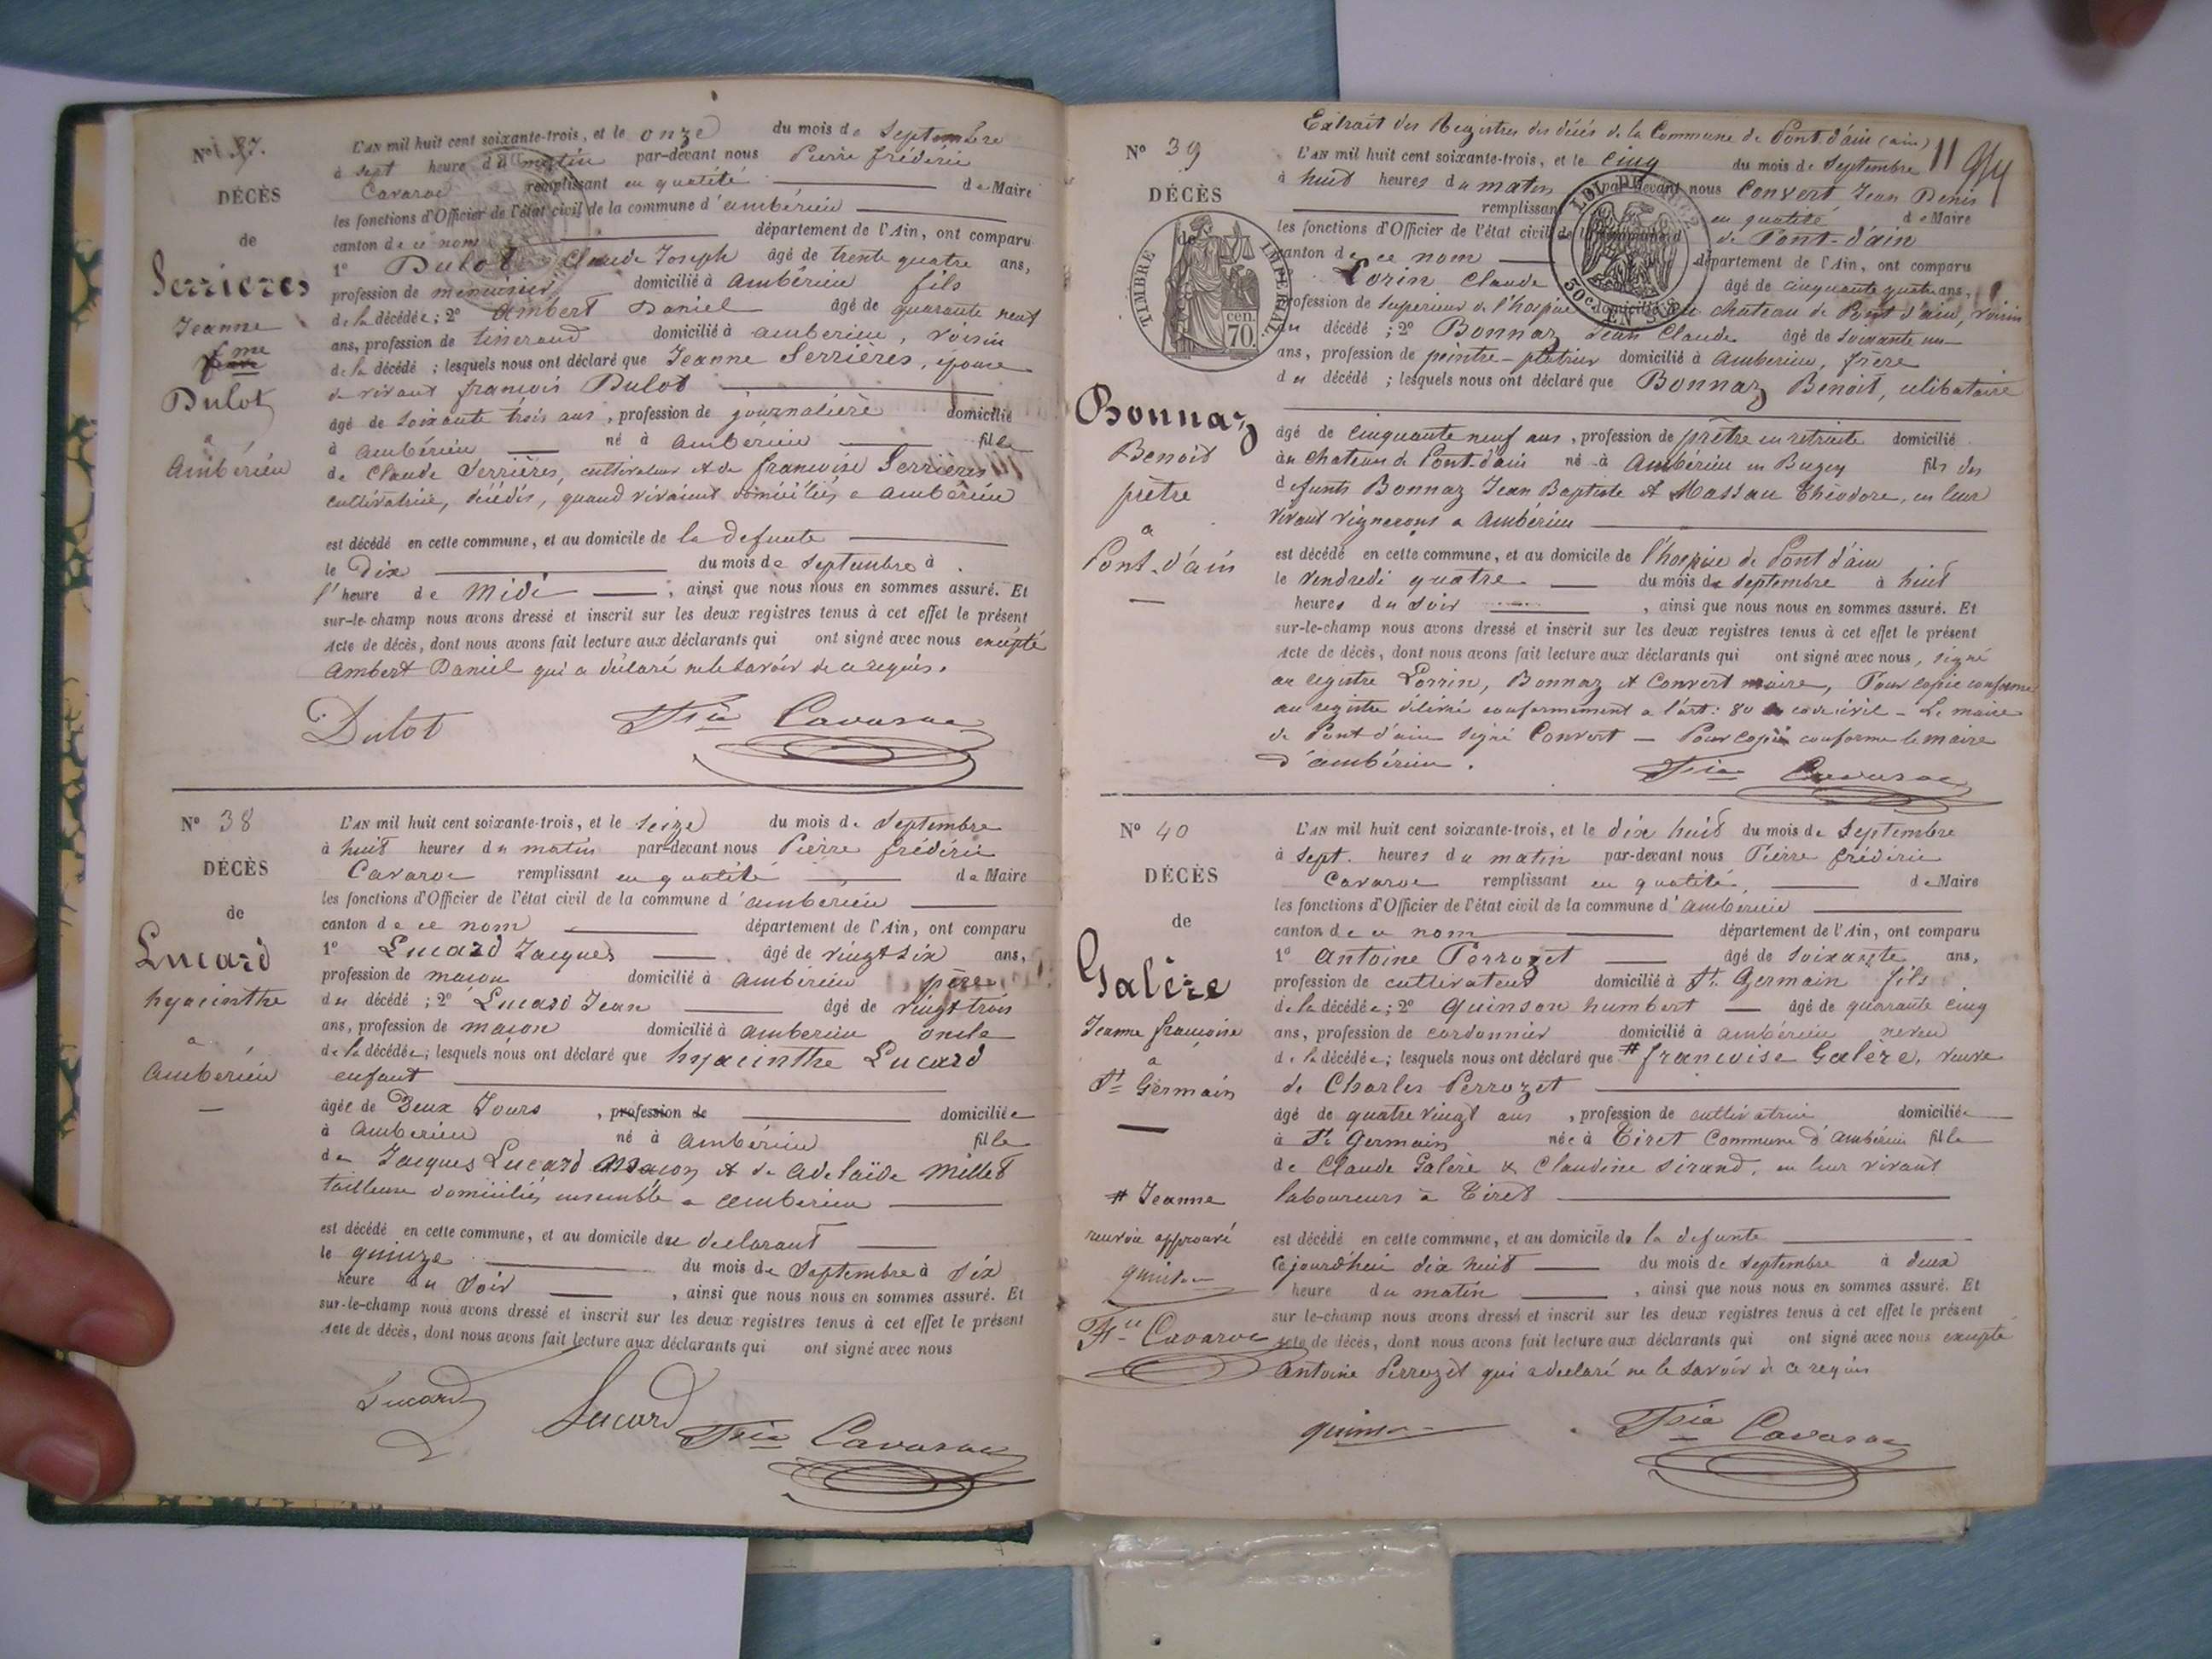 N° 37.
DÉCÈS
de
Serrieres
Jeanne
fme
Dulot
a
Ambérieu
L'AN mil huit cent soixante-trois, et le onze du mois de Septembre
à sept heure du matin par-devant nous Pierre frédéric
Cavaroc remplissant en qualité de Maire
les fonctions d'Officier de l'état civil de la commune d'ambérieu
canton de ce nom département de l'Ain, ont comparu
1° Dulot Claude Joseph âgé de trente quatre ans,
profession de menuisier domicilié à ambérieu fils
de la décédée; 2° Ambert Daniel âgé de quarante neuf
ans, profession de tisserand domicilié à amberieu, voisin
de la décédé ; lesquels nous ont déclaré que Jeanne Serrières, epouse
de vivant françois Dulot
âgé de soixante trois ans, profession de journalière domicilié
à ambérieu né à ambérieu fille
de Claude Serrières, cultivateur et de francoise Serrières
cultivatrice, décédés, quand vivaient domiciliés a ambérieu
est décédé en cette commune, et au domicile de la defunte
le Dix du mois de Septembre à
l'heure de Midi ; ainsi que nous nous en sommes assuré. Et
sur-le-champ nous avons dressé et inscrit sur les deux registres tenus à cet effet le présent
Acte de décès, dont nous avons fait lecture aux déclarants qui ont signé avec nous excepté
Ambert Daniel qui a déclaré ne le savoir de ce requis.
Dulot Fric Cavaroc
N° 38
DÉCÈS
de
Lucard
hyacinthe
a
Amberieu
L'AN mil huit cent soixante-trois, et le seize du mois de Septembre
à huit heures du matin par-devant nous Pierre frédéric
Cavaroc remplissant en qualité de Maire
les fonctions d'Officier de l'état civil de la commune d'amberieu
canton de ce nom département de l'Ain, ont comparu
1° Lucard Jacques âgé de vingt six ans,
profession de maçon domicilié à ambérieu père
du décédé ; 2° Lucard Jean âgé de vingt trois
ans, profession de maçon domicilié à amberieu oncle
de la décédée; lesquels nous ont déclaré que hyacinthe Lucard
enfant
âgée de Deux Jours , profession de domiciliée
à amberieu né à ambérieu fille
de Jacques Lucard maçon et de adelaïde Millet
tailleuse domiciliés ensemble a amberieu
est décédé en cette commune, et au domicile du declarant
le quinze du mois de Septembre à six
heure du soir , ainsi que nous nous en sommes assuré. Et
sur-le-champ nous avons dressé et inscrit sur les deux registres tenus à cet effet le présent
Acte de décès, dont nous avons fait lecture aux déclarants qui ont signé avec nous
Lucard Lucard Fric Cavaroc
Extrait des Registres des décès de la Commune de Pont-d'ain (ain)
N° 39
DÉCÈS
de
TIMBRE IMPERIAL
cen. 70.
Bonnaz
Benoit
prêtre
a
Pont-d'ain
L'AN mil huit cent soixante-trois, et le cinq du mois de Septembre
à huit heures du matin par-devant nous Convert Jean Denis
remplissant en qualité de Maire
les fonctions d'Officier de l'état civil de la commune d de Pont-d'ain
LOI DE 1862
50c. EN SUS
canton de ce nom département de l'Ain, ont comparu
Lorin Claude âgé de cinquante quatre ans,
profession de superieur de l'hospice domicilié au chateau de Pont d'ain, voisin
du décédé ; 2° Bonnaz Jean Claude âgé de soixante un
ans, profession de peintre-platrier domicilié à amberieu, frère
du décédé ; lesquels nous ont déclaré que Bonnaz Benoit, célibataire
âgé de cinquante neuf ans, profession de prêtre en retraite domicilié
au chateau de Pont-d'ain né à Ambérieu en Bugey fils des
defunts Bonnaz Jean Baptiste et Massau Théodore, en leur
vivant vignerons a ambérieu
est décédé en cette commune, et au domicile de l'hospice de Pont d'ain
le vendredi quatre du mois de septembre à huit
heures du soir , ainsi que nous nous en sommes assuré. Et
sur-le-champ nous avons dressé et inscrit sur les deux registres tenus à cet effet le présent
Acte de décès, dont nous avons fait lecture aux déclarants qui ont signé avec nous, signé
au registre Lorrin, Bonnaz et Convert maire, Pour copie conforme
au registre délivré conformément a l'art: 80 code civil – Le maire
de Pont-d'ain signé Convert – Pour copie conforme le maire
d'ambérieu.
Fric Cavaroc
N° 40
DÉCÈS
de
Galère
Jeanne françoise
a
St Germain
# Jeanne
renvoi approuvé
quinson
Fric Cavaroc
L'AN mil huit cent soixante-trois, et le dix huit du mois de Septembre
à sept. heures du matin par-devant nous Pierre frédéric
Cavaroc remplissant en qualité, de Maire
les fonctions d'Officier de l'état civil de la commune d'amberieu
canton de ce nom département de l'Ain, ont comparu
1° Antoine Perrozet âgé de soixante ans,
profession de cultivateur domicilié à St. Germain fils
de la décédée; 2° Quinson humbert âgé de quarante cinq
ans, profession de cordonnier domicilié à ambérieu neveu
de la décédée; lesquels nous ont déclaré que # françoise Galère, veuve
de Charles Perrozet
âgé de quatre vingt ans , profession de cultivatrice domiciliée
à St Germain née à Tiret Commune d'ambérieu fille
de Claude Galère & Claudine Sirand, en leur vivant
laboureurs à Tiret
est décédé en cette commune, et au domicile de la defunte
cejourd'hui dix huit du mois de septembre à deux
heure du matin , ainsi que nous nous en sommes assuré. Et
sur le-champ nous avons dressé et inscrit sur les deux registres tenus à cet effet le présent
Acte de décès, dont nous avons fait lecture aux déclarants qui ont signé avec nous excepté
Antoine Perrozet qui a declaré ne le savoir de ce requis
quinson Fric Cavaroc